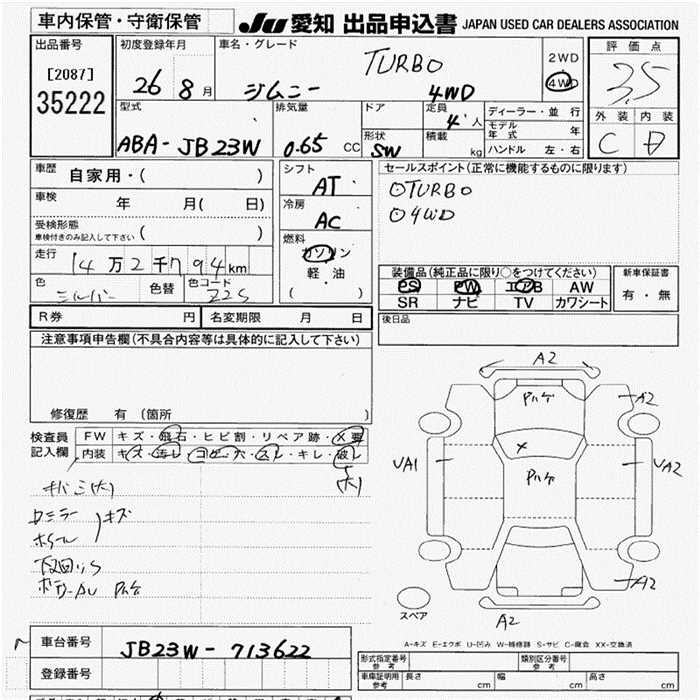 車内保管・守衛保管
JU 愛知 出品申込書 JAPAN USED CAR DEALERS ASSOCIATION
出品番号
[2087]
35222
初度登録年月
26 8 月
車名・グレード
TURBO
ジムニー 4WD
2WD
4WD
評価点
3.5
外装 内装
C D
型式
ABA-JB23W
排気量
0.65 CC
ドア
形状
SW
定員
4 人
積載
kg
ディーラー・並行
モデル年式 年
ハンドル 左・右
車歴 自家用・( )
車検 年 月( 日)
受検形態
車検付きのみ記入して下さい ( )
走行 14万2千794km
色 シルバー 色替 色コード Z2S
シフト
AT
冷房
AC
燃料
ガソリン
軽・油
( )
セールスポイント(正常に機能するものに限ります)
○TURBO
○4WD
装備品(純正品に限り○をつけてください)
PS PW エアB AW
SR ナビ TV カワシート
新車保証書
有・無
後日品
R券 円 名変期限 月 日
注意事項申告欄(不具合内容等は具体的に記入して下さい)
修復歴 有 (箇所 )
検査員記入欄
FW キズ・飛石・ヒビ割・リペア跡・X要
内装 キズ・汚レ・コゲ・穴・スレ・キレ・破レ
(大)
キバミ(大)
ホイール キズ
A2
A2
A2
A2
A2
UA1
UA2
ハンケ
ハンケ
X
スペア
A-キズ E-エクボ U-凹み W-補修跡 S-サビ C-腐食 XX-交換済
車台番号 JB23W-713622
登録番号
形式指定番号 参考
類別区分番号 参考
車庫証明用 参考 長さ cm 幅 cm 高さ cm